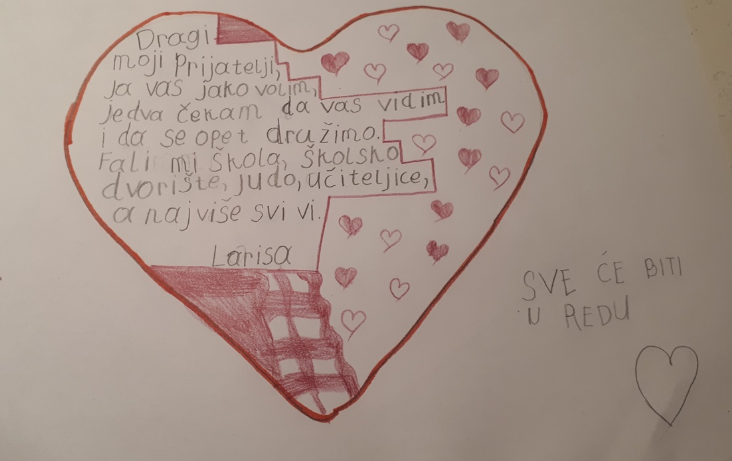 Dragi
moji prijatelji,
ja vas jako volim,
jedva čekam da vas vidim
i da se opet družimo.
Fali mi škola, školsko
dvorište, judo, učiteljice,
a najviše svi vi.
Larisa
SVE ĆE BITI
U REDU